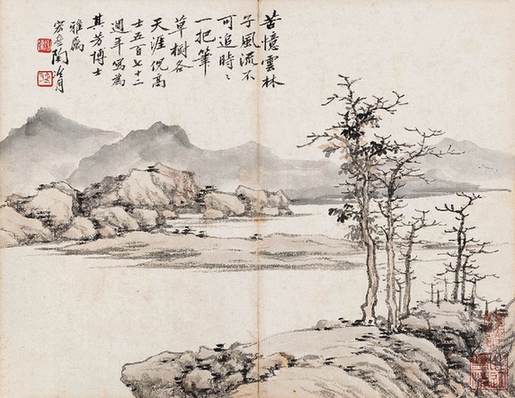 苦憶雲林
子風流不
可追時〻
一把筆
草樹各
天涯倪高
士五百七十二
週年寫為
其芳博士
雅屬
陶